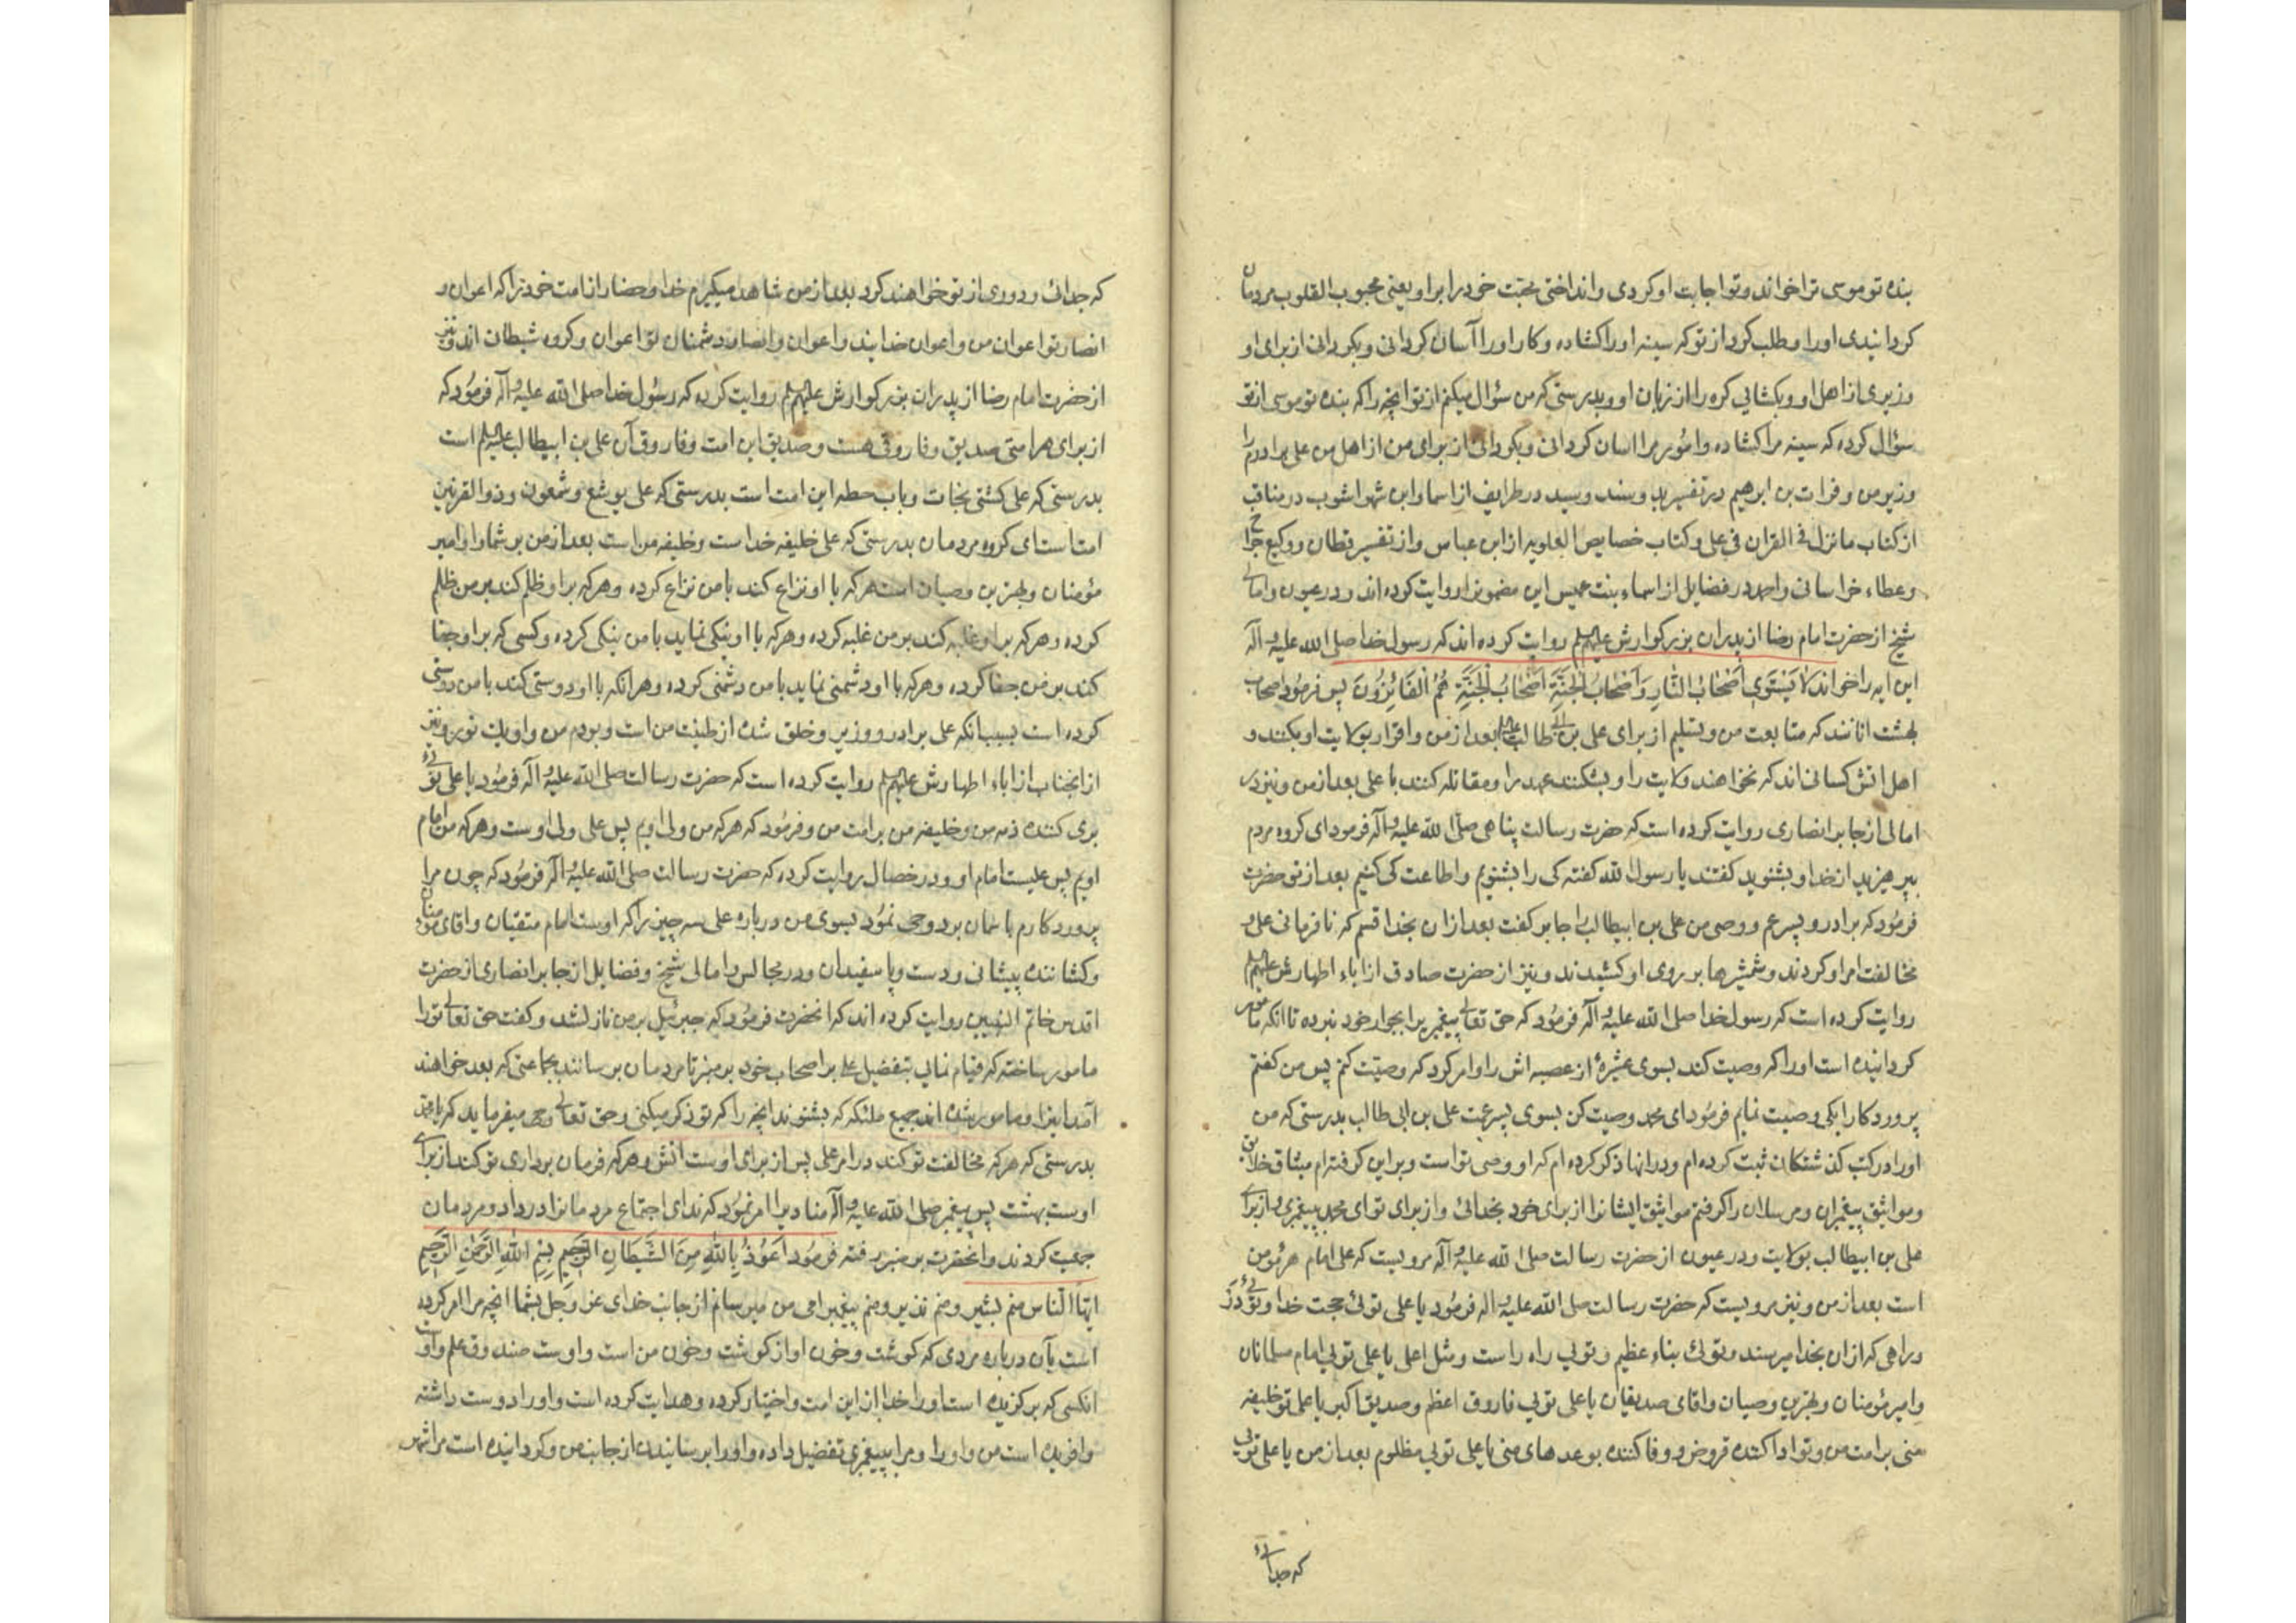 بنده تو موسی ترا خواند و تو اجابت او کردی و انداختی محبّت خود را بر او یعنی محبوب القلوب مردمان
کردانیدی او را و طلب کرد از تو که سینه او را کشاده و کار او را آسان کردانی و بکردانی از برای او
وزیری از اهل او و بکشایی کره را از زبان او و بدرستی که من سؤال میکنم از تو انچه را که بنده تو موسی از تو
سؤال کرده که سینه مرا کشاده و امور مرا اسان کردانی و بکردانی از برای من از اهل من علی برادرم را
وزیر من و فرات بن ابرهیم در تفسیر و سید در طرایف از اسما و ابن شهراشوب در مناقب
از کتاب ما نزل فی القران فی علی و کتاب خصایص العلویه از ابن عباس و از تفسیر قطان و وکیع
و عطاء خراسانی و احمد در فضایل از اسماء بنت عمیس این مضمونرا روایت کرده اند و در عیون و امالی
شیخ از حضرت امام رضا از پدران بزرکوارش علیهم روایت کرده اند که رسول خدا صلی الله علیه و اله
این ایه را خواند لا یَستَوِی اَصْحابُ النّارِ وَ اَصْحابُ الجَنَّةِ اَصْحابُ الْجَنَّةِ هُمُ الْفَائِزُونَ پس فرمُود اصحاب
بهشت انانند که متابعت من و تسلیم از برای علی بن ابی طالب بعد از من و اقرار بولایت او بکنند و
اهل اتش کسانی اند که نخواهند ولایت را و بشکنند عهد را و مقاتله کنند با علی بعد از من و نیز در
امالی از جابر انصاری روایت کرده است که حضرت رسالت پناهی صلّی الله علیه و اله فرمود ای کروه مردم
بپرهیزید از خدا و بشنوید کفتند یا رسول الله کفته کی را بشنویم و اطاعت کی کنیم بعد از تو حضرت
فرمُود که برادر و پسر عم و وصی من علی بن ابیطالب را جابر کفت بعد از ان بخدا قسم که نافرمانی علی و
مخالفت امر او کردند و شمشیرها بر روی او کشیدند و نیز از حضرت صادق از اباء اطهارش علیهم
روایت کرده است که رسول خدا صلی الله علیه و اله فرمُود که حق تعالی پیغمبریرا بجوار خود نبرده تا انکه مامور
کردانیده است او را که وصیت کند بسوی عشیرهٔ از عصبه اش را و امر کرد که وصیّت کنم پس من کفتم
پروردکارا بکی وصیت نمایم فرمُود ای محمد وصیت کن بسوی پسر عمت علی بن ابی طالب بدرستی که من
او را در کتب کذشتکان ثبت کرده ام و در انها ذکر کرده ام که او وصی تو است و بر این کرفته ام میثاق خلایق
و مواثیق پیغمبران و مرسلان را کرفتم مواثیق ایشانرا از برای خود بخدائی و از برای تو ای محمد پیغمبری و از برای
علی بن ابیطالب بولایت و در عیون از حضرت رسالت صلی الله علیه و اله مرویست که علی امام هر مؤمن
است بعد از من و نیز مرویست که حضرت رسالت صلی الله علیه و اله فرمُود یا علی توئی حجت خدا و توئی در
و راهی که از ان بخدا میرسند و توئی بناء عظیم و تویی راه راست و مثل اعلی یا علی تویی امام مسلمانان
و امیر مؤمنان و بهترین وصیان و اقای صدیقان یا علی تویی فاروق اعظم و صدیق اکبر یا علی تو خلیفه
منی بر امت من و تو ادا کننده قروض و وفا کننده بوعدهای منی یا علی تویی مظلوم بعد از من یا علی تویی
که جدائی
که جدائی و دوری از تو خواهند کرد بعد از من شاهد میکیرم خدا و حضار از امت خود را که اعوان و
انصار تو اعوان من و اعوان خدایند و اعوان و انصار دشمنان تو اعوان و کروه شیطان اند و نیز
از حضرت امام رضا از پدران بزرکوارش علیهم روایت کرده که رسُول خدا صلی الله علیه و اله فرمُود که
از برای هر امتی صدیق و فاروقی هست و صدیق این امت و فاروق آن علی بن ابیطالب است
بدرستی که علی کشتی نجات و باب حطه این امت است بدرستی که علی یوشع و شمعون و ذو القرنین
امتست ای کروه مردمان بدرستی که علی خلیفه خدا است و خلیفه من است بعد از من بر شما و او امیر
مؤمنان و بهترین وصیان است هر که با او نزاع کند با من نزاع کرده و هر که بر او ظلم کند بر من ظلم
کرده و هر که بر او غلبه کند بر من غلبه کرده و هر که با او نیکی نماید با من نیکی کرده و کسی که بر او جفا
کند بر من جفا کرده و هر که با او دشمنی نماید با من دشمنی کرده و هر انکه با او دوستی کند با من دوستی
کرده است بسبب انکه علی برادر و وزیر و خلق شده از طینت من است و بودم من و او یک نور و نیز
از انجناب از اباء اطهارش علیهم روایت کرده است که حضرت رسالت صلی الله علیه و اله فرمُود یا علی توئی
بری کننده ذمه من و خلیفه من بر امت من و فرمُود که هر که من ولی اویم پس علی ولی اوست و هر که من امام
اویم پس علیست امام او و در خصال روایت کرده که حضرت رسالت صلی الله علیه و اله فرمُود که چون مرا
پروردکارم باسمان برد وحی نمُود بسوی من درباره علی سه چیز را که اوست امام متقیان و اقای مؤمنان
و کشاننده پیشانی و دست و پا سفیدان و در مجالس و امالی شیخ و فضایل از جابر انصاری از حضرت
اقدس خاتم النبیین روایت کرده اند که انحضرت فرمُود که جبرئیل بر من نازل شد و کفت حق تعالی ترا
مامور ساخته که قیام نمایی بتفضیل علی بر اصحاب خود بر منبر تا مردمان برسانند بجماعتی که بعد خواهند
امد اینرا و مامور شده اند جمیع ملئکه که بشنوند انچه را که تو ذکر میکنی و حق تعالی وحی میفرماید که یا محمد
بدرستی که هر که مخالفت تو کند در امر علی پس از برای اوست اتش و هر که فرمان برداری تو کند از برای
اوست بهشت پس پیغمبر صلی الله علیه و اله منادیرا امر نمُود که ندای اجتماع مردمانرا در داد و مردمان
جمعیت کردند و انحضرت بر منبر رفته فرمُود اَعُوذُ بِاللهِ مِنَ الشَّیطَانِ الرَّجِیمِ بِسْمِ اللهِ الرَّحْمٰنِ الرَّحِیمِ
ایّها النّاس منم بشیر و منم نذیر و منم پیغمبر امی من میرسانم از جانب خدای عز و جل بشما انچه مرا امر کرده
است بآن درباره مردی که کوشت و خون او از کوشت و خون من است و اوست صندوق علم و او
انکسی که برکزیده است او را خدا از این امت و اختیار کرده و هدایت کرده است و او را دوست داشته
و افریده است من و او را و مرا بپیغمبری تفضیل داده و او را برسانیدن از جانب من و کردانیده است مرا شهر